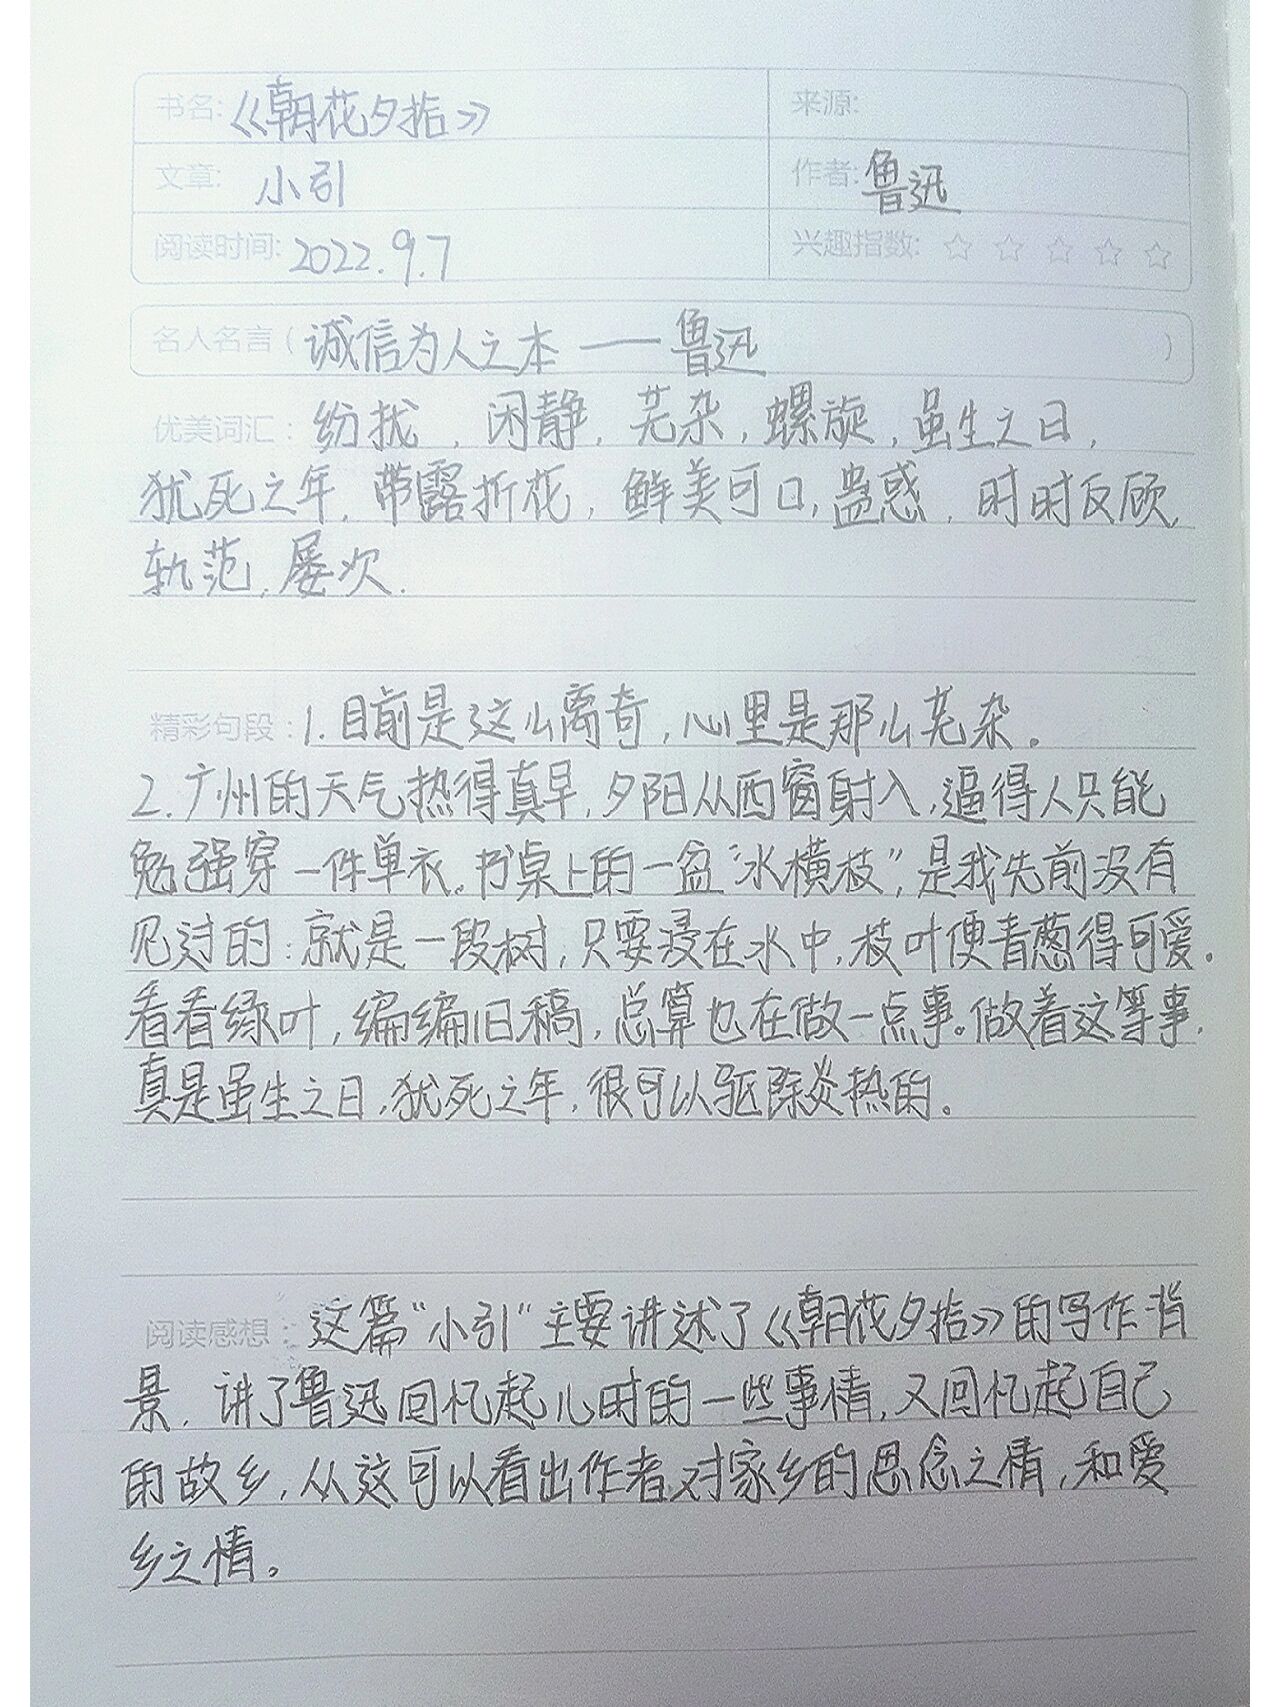 书名:《朝花夕拾》 来源:
文章: 小引 作者:鲁迅
阅读时间: 2022.9.7 兴趣指数: ☆ ☆ ☆ ☆ ☆
名人名言(诚信为人之本 ——鲁迅)
优美词汇: 纷扰,闲静,芜杂,螺旋,虽生之日,
犹死之年,带露折花,鲜美可口,蛊惑,时时反顾,
轨范,屡次.
精彩句段: 1.目前是这么离奇,心里是那么芜杂。
2.广州的天气热得真早,夕阳从西窗射入,逼得人只能
勉强穿一件单衣。书桌上的一盆“水横枝”,是我先前没有
见过的:就是一段树,只要浸在水中,枝叶便青葱得可爱。
看看绿叶,编编旧稿,总算也在做一点事。做着这等事,
真是虽生之日,犹死之年,很可以驱除炎热的。
阅读感想: 这篇“小引”主要讲述了《朝花夕拾》的写作背
景,讲了鲁迅回忆起儿时的一些事情,又回忆起自己
的故乡,从这可以看出作者对家乡的思念之情,和爱
乡之情。